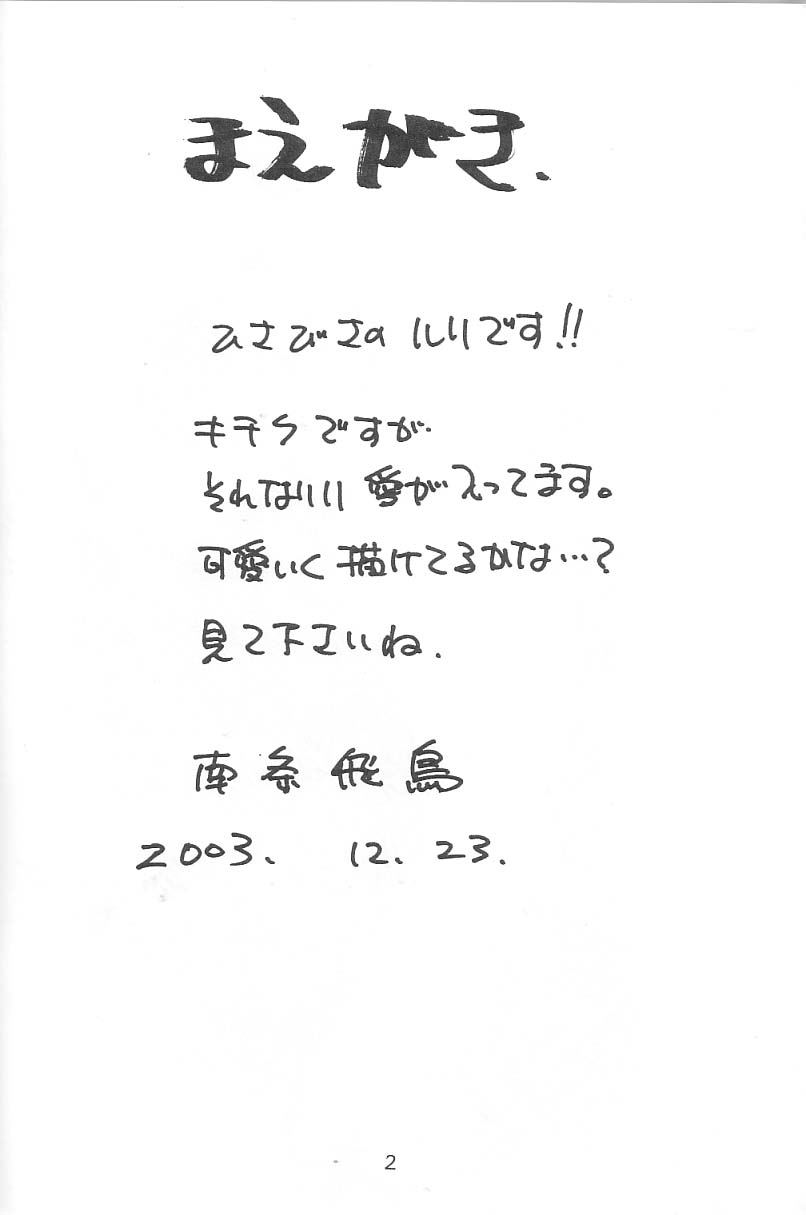 まえがき.
ひさびさの いいです!!
キチクですが
それなりに 愛が入ってます。
可愛いく描けてるかな…?
見て下さいね.
南条飛鳥
2003. 12. 23.
2